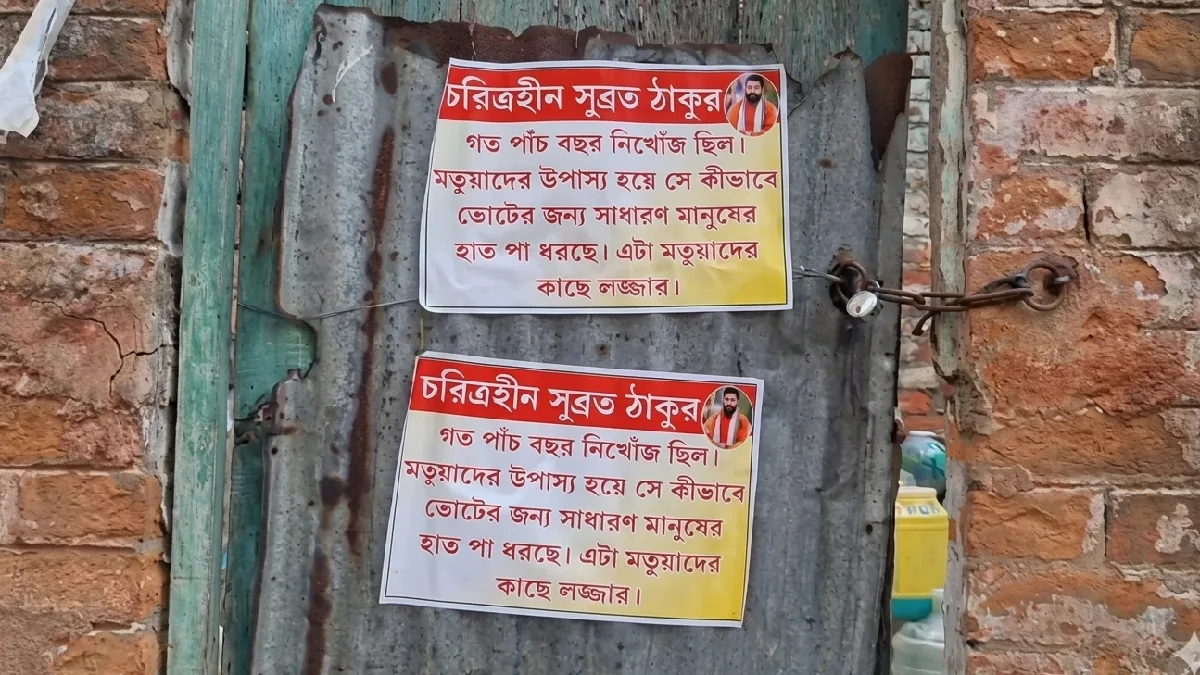 চরিত্রহীন সুব্রত ঠাকুর
গত পাঁচ বছর নিখোঁজ ছিল।
মতুয়াদের উপাস্য হয়ে সে কীভাবে
ভোটের জন্য সাধারণ মানুষের
হাত পা ধরছে। এটা মতুয়াদের
কাছে লজ্জার।
চরিত্রহীন সুব্রত ঠাকুর
গত পাঁচ বছর নিখোঁজ ছিল।
মতুয়াদের উপাস্য হয়ে সে কীভাবে
ভোটের জন্য সাধারণ মানুষের
হাত পা ধরছে। এটা মতুয়াদের
কাছে লজ্জার।